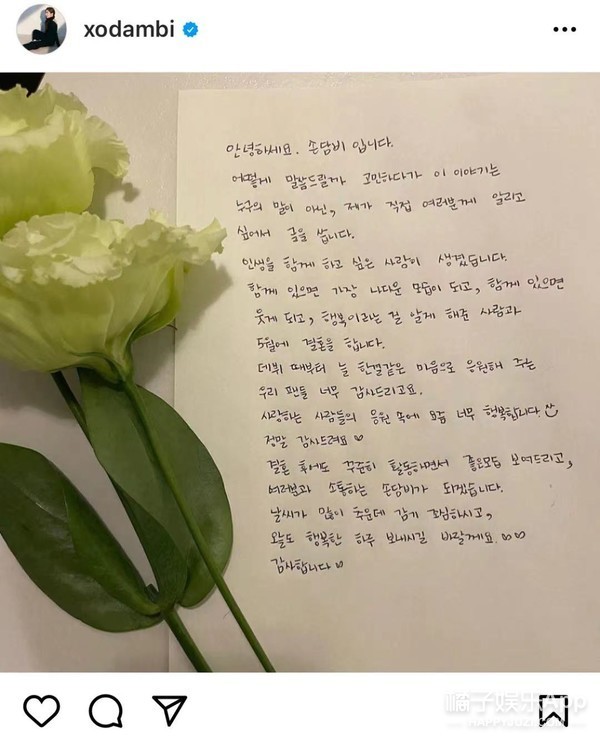 xodambi
안녕하세요. 손담비 입니다.
어떻게 말씀드릴까 고민하다가 이 이야기는
누구의 말이 아닌, 제가 직접 여러분께 알리고
싶어서 글을 씁니다.
인생을 함께 하고 싶은 사람이 생겼습니다.
함께 있으면 가장 나다운 모습이 되고, 함께 있으면
웃게 되고, 행복이라는 걸 알게 해준 사람과
5월에 결혼을 합니다.
데뷔 때부터 늘 한결같은 마음으로 응원해 주는
우리 팬들 너무 감사드리고요.
사랑하는 사람들의 응원 속에 요즘 너무 행복합니다
정말 감사드려요 ♡
결혼 후에도 꾸준히 활동하면서 좋은모습 보여드리고,
여러분과 소통하는 손담비가 되겠습니다.
날씨가 많이 추운데 감기 조심하시고,
오늘도 행복한 하루 보내시길 바랄게요. ♡♡
감사합니다 ♡
橘子娱乐App
HAPPYJUZI.COM